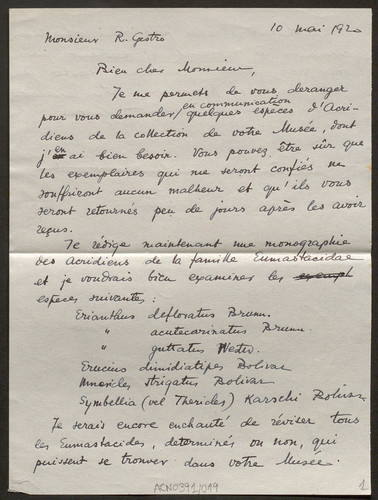 10 mai 1920
Monsieur R. Gestro
Bien cher Monsieur,
Je me permets de vous deranger
pour vous demander/ en communication quelques espèces d'Acri-
diens de la collection de votre Musée, dont
j'en ai bien besoin. Vous pouvez être sûr que
les exemplaires qui me seront confiés ne
souffriront aucun malheur et qu'ils vous
seront retournés peu de jours après les avoir
reçus.
Je rédige maintenant une monographie
des acridiens de la famille Eumastacidae
et je voudrais bien examiner les exempl
espèces suivantes :
Erianthus defloratus Brunn.
" acutecarinatus Brunn.
" guttatus Westw.
Erucius dimidiatipes Bolivar
Mnesicles strigatus Bolivar
Symbellia (vel Thericles) Karschi Bolivar
Je serais encore enchanté de réviser tous
les Eumastacides, determinés ou non, qui
puissent se trouver dans votre Musée.
ACN0391/019
1